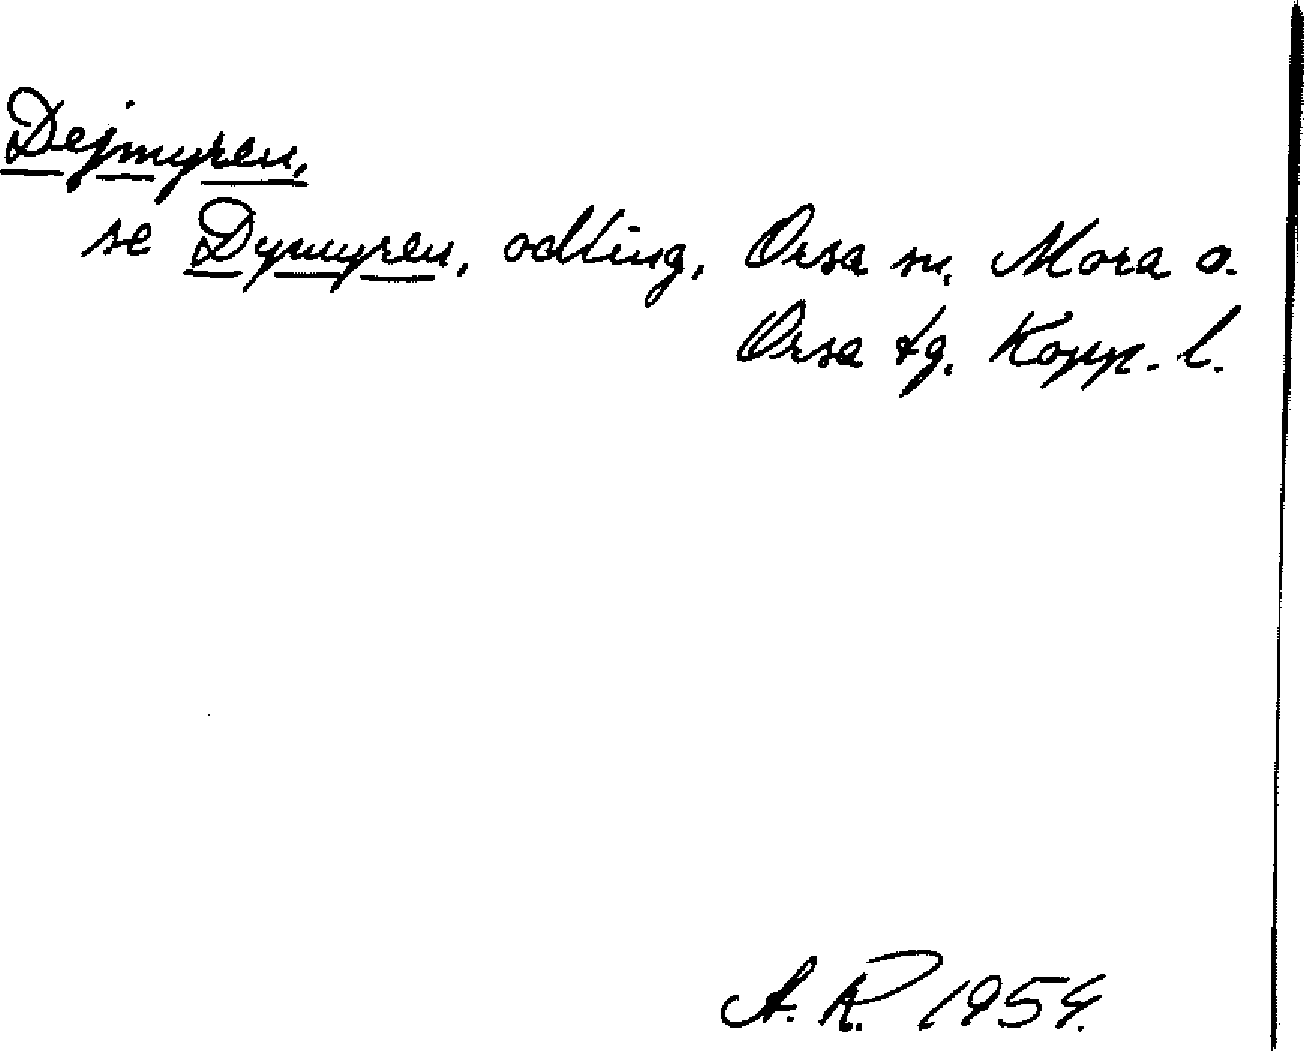 Dejmyren,
se Dymyren, odling, Orsa sn, Mora o.
Orsa tg. Kopp. l.
A. R. 1954.